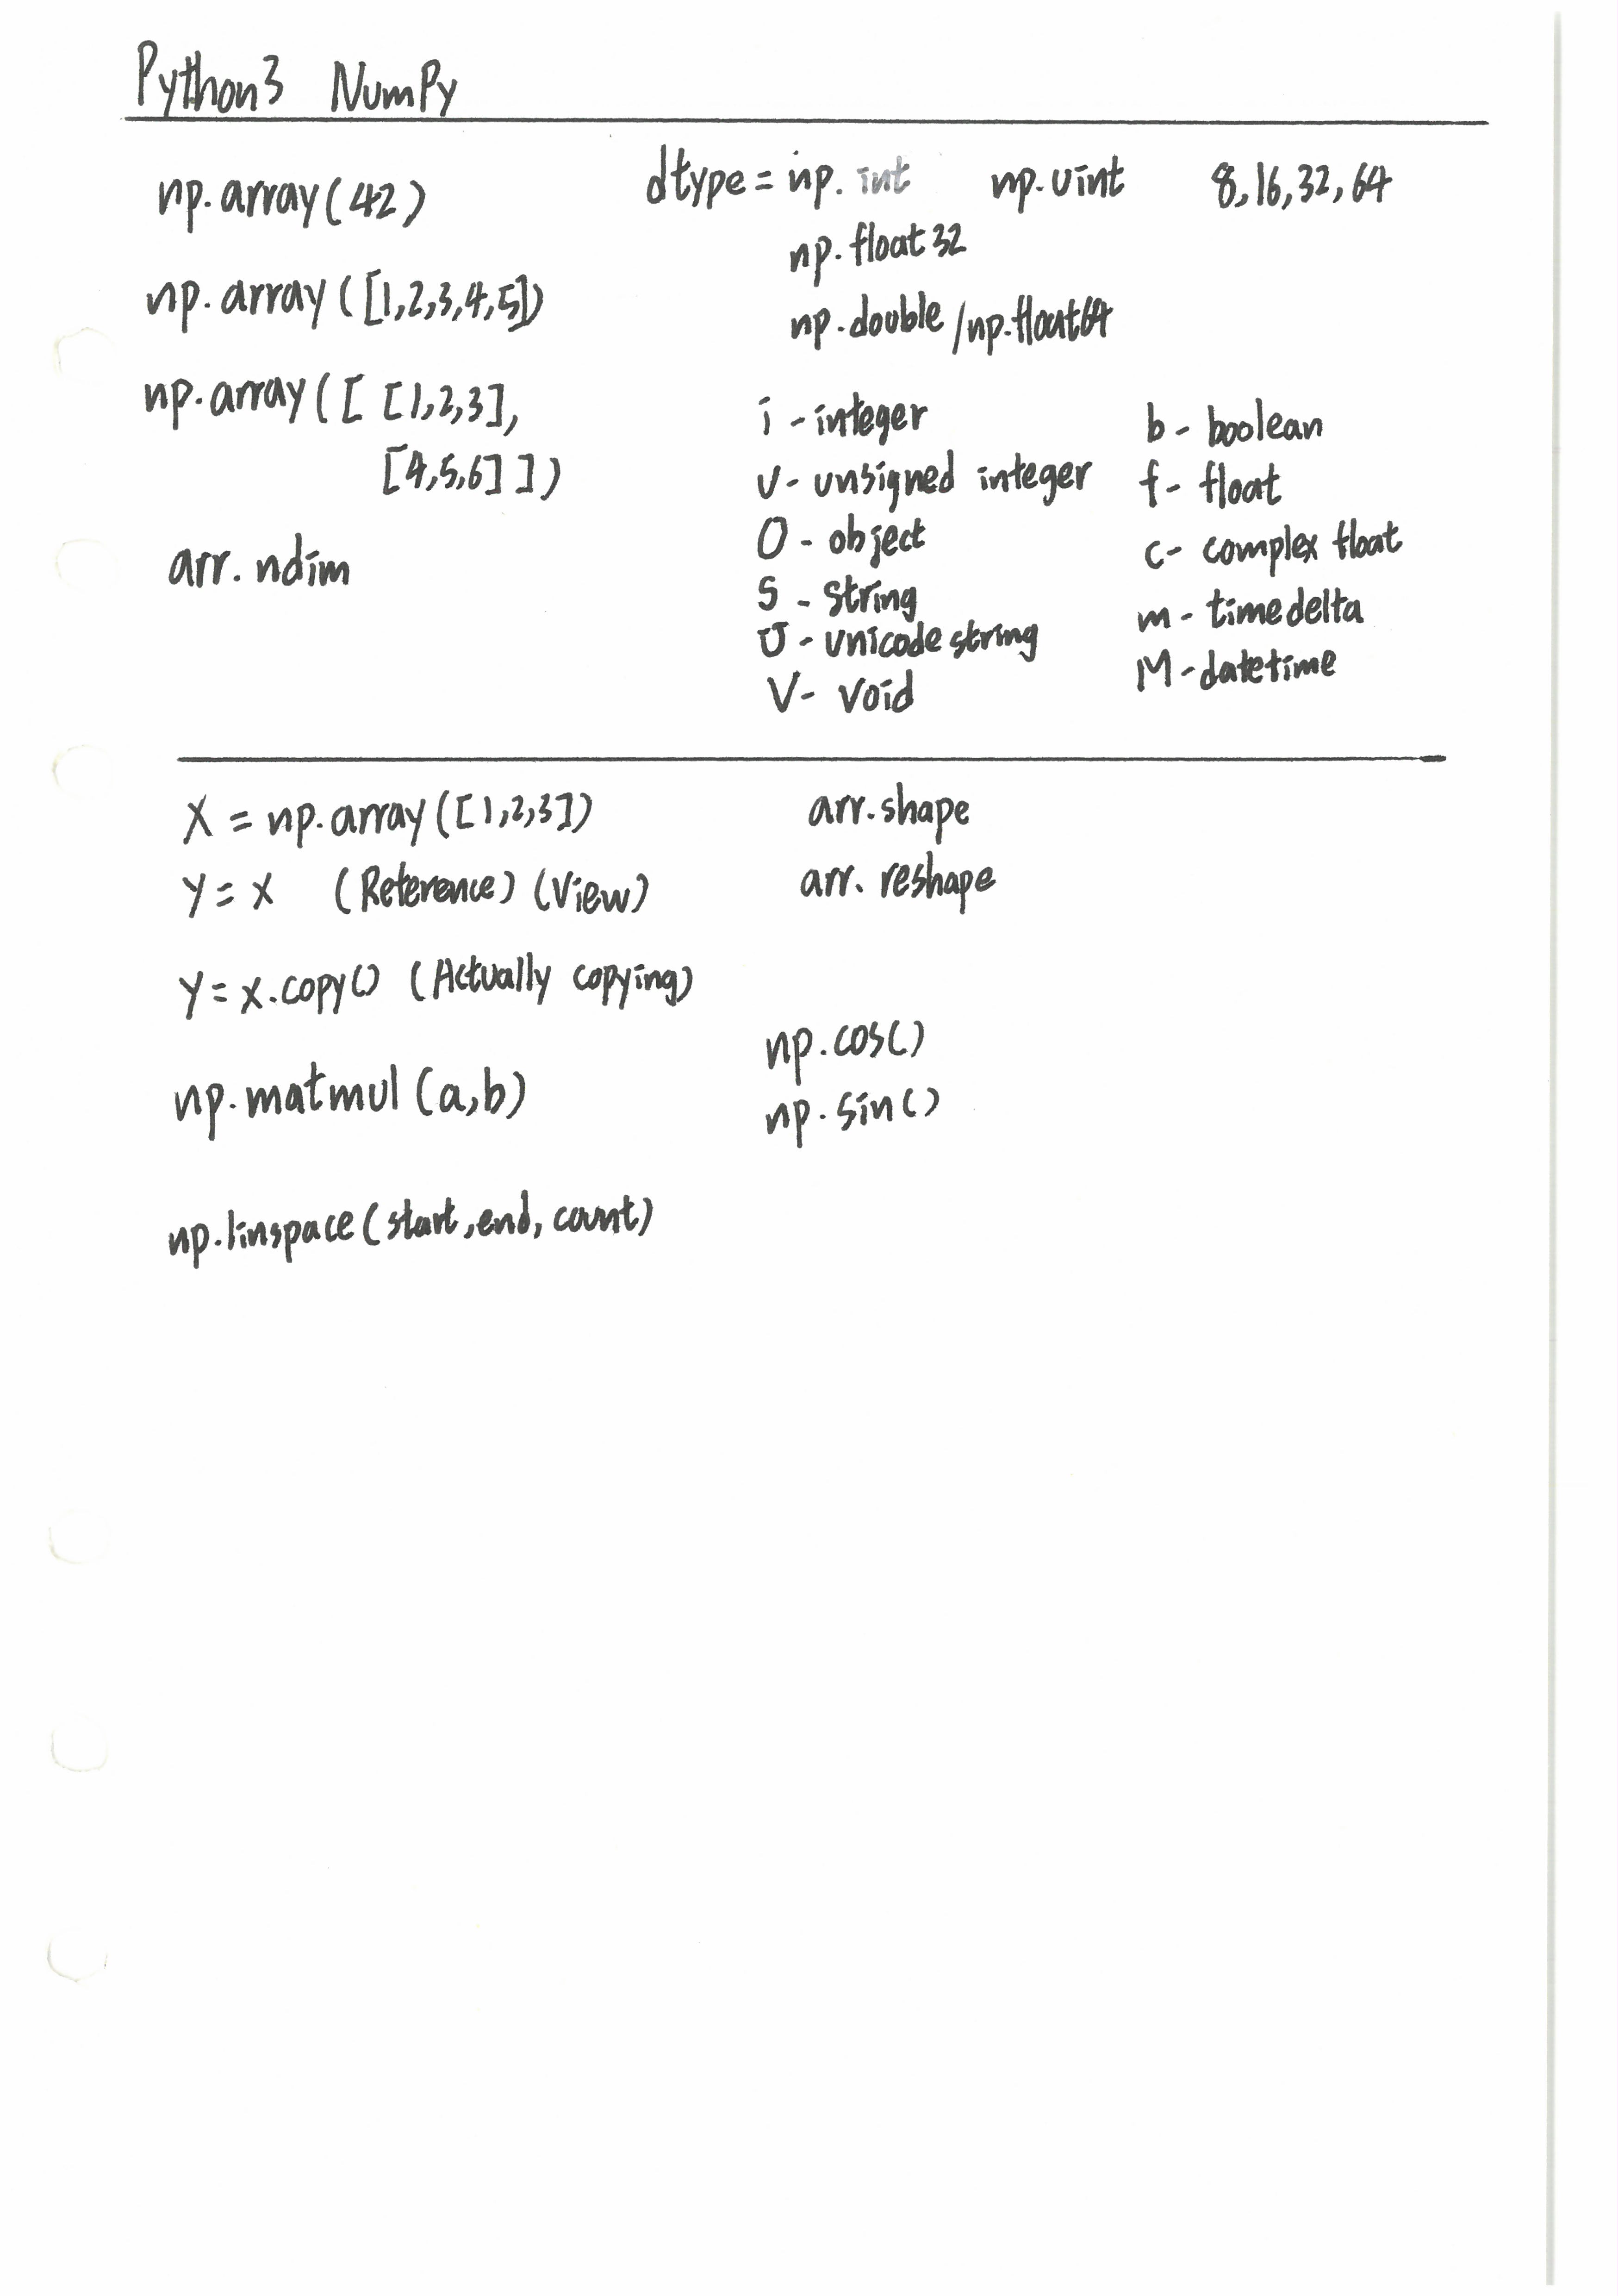 Python3 NumPy
np.array(42)
np.array([1,2,3,4,5])
np.array([ [1,2,3],
[4,5,6] ])
arr.ndim
dtype = np.int np.uint 8,16,32,64
np.float32
np.double/np.float64
i - integer
u - unsigned integer
O - object
S - string
U - unicode string
V - void
b - boolean
f - float
c - complex float
m - timedelta
M - datetime
X = np.array([1,2,3])
Y = X (Reference) (View)
Y = X.copy() (Actually copying)
np.matmul(a,b)
np.linspace(start,end,count)
arr.shape
arr.reshape
np.cos()
np.sin()